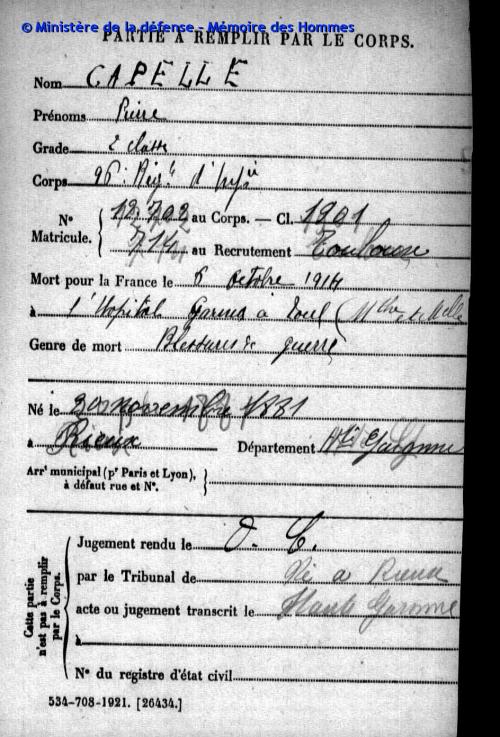 © Ministère de la défense - Mémoire des Hommes
PARTIE A REMPLIR PAR LE CORPS.
Nom CAPELLE
Prénoms Pierre
Grade 2 classe
Corps 96e Régt d'Infie
N° Matricule. 12.702 au Corps. — Cl. 1901
714 au Recrutement Toulouse
Mort pour la France le 6 octobre 1914
à l'Hopital Gama à Toul (Mthe et Melle
Genre de mort Blessures de guerre
Né le 30 novembre 1881
à Rieux Département Hte Garonne
Arrt municipal (pr Paris et Lyon), à défaut rue et N°.
Cette partie n'est pas à remplir par le Corps.
Jugement rendu le D. C.
par le Tribunal de Né a Rieux
acte ou jugement transcrit le Haute Garonne
à
N° du registre d'état civil
534-708-1921. [26434.]